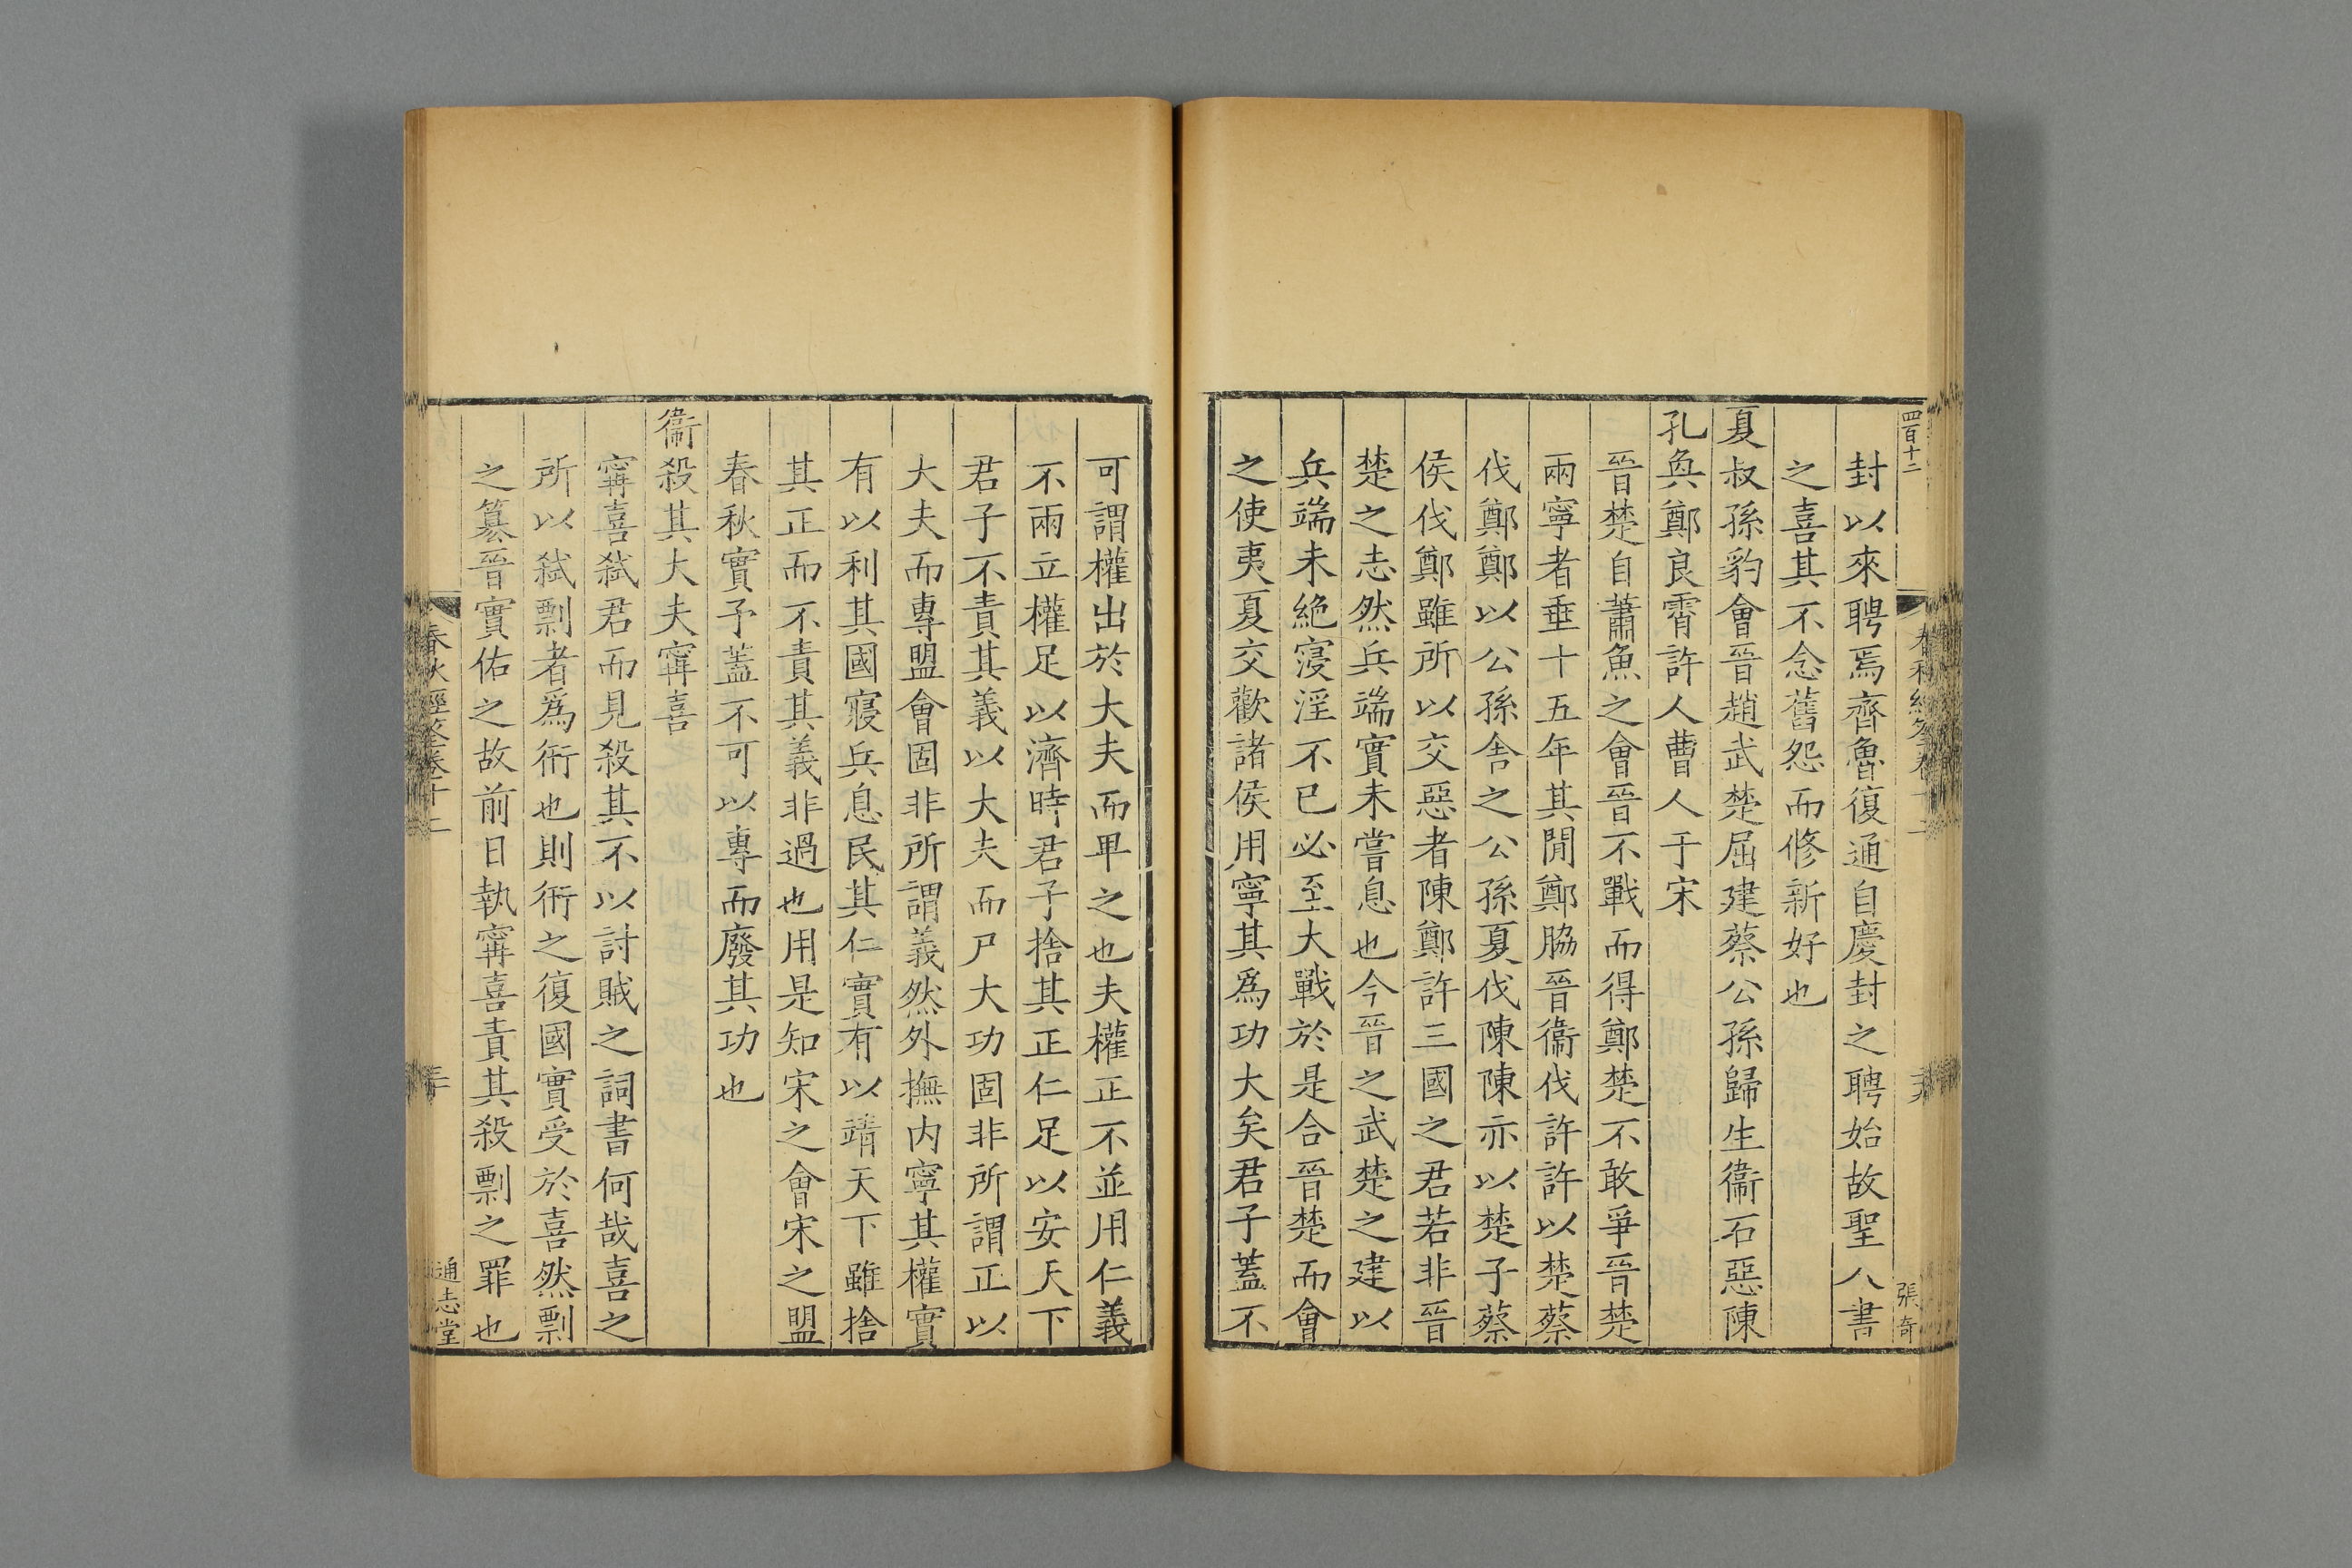 四百十二
封以來聘焉齊魯復通自慶封之聘始故聖人書
之喜其不念舊怨而修新好也
夏叔孫豹會晉趙武楚屈建蔡公孫歸生衞石惡陳
孔奐鄭良霄許人曹人于宋
晉楚自蕭魚之會晉不戰而得鄭楚不敢爭晉楚
兩寧者垂十五年其閒鄭脇晉衞伐許許以楚蔡
伐鄭鄭以公孫舎之公孫夏伐陳陳亦以楚子蔡
侯伐鄭雖所以交惡者陳鄭許三國之君若非晉
楚之志然兵端實未嘗息也今晉之武楚之建以
兵端未絶寖淫不已必至大戰於是合晉楚而會
之使夷夏交歡諸侯用寧其爲功大矣君子蓋不
張奇
可謂權出於大夫而甲之也夫權正不並用仁義
不兩立權足以濟時君子捨其正仁足以安天下
君子不責其義以大夫而尸大功固非所謂正以
大夫而專盟會固非所謂義然外撫内寧其權實
有以利其國寢兵息民其仁實有以靖天下雖捨
其正而不責其義非過也用是知宋之會宋之盟
春秋實予蓋不可以專而廢其功也
衞殺其大夫甯喜
甯喜弑君而見殺其不以討賊之詞書何哉喜之
所以弑剽者爲衎也則衎之復國實受於喜然剽
之篡晉實佑之故前日執甯喜責其殺剽之罪也
春秋經筌卷十二
通志堂